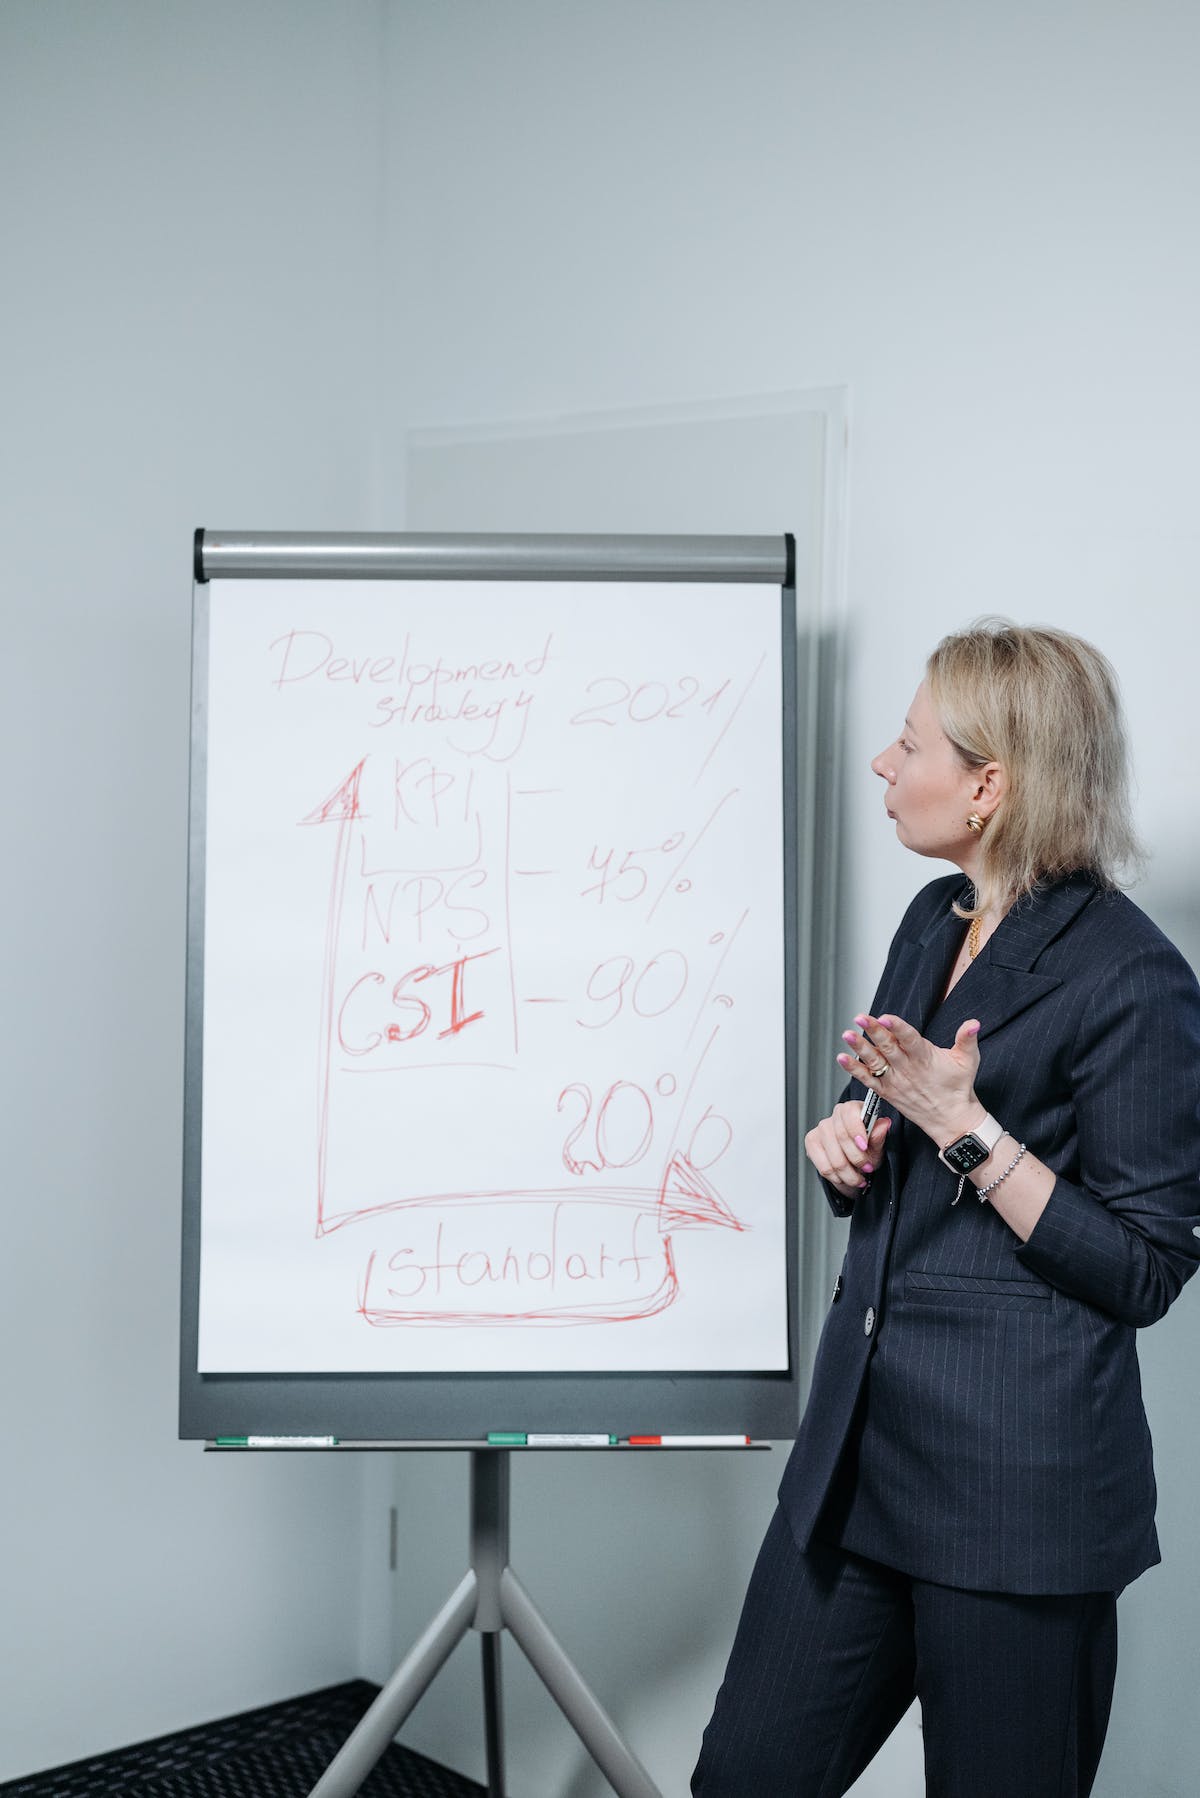 Development
strategy 2021
KPI
NPS 75%
CSI 90%
20%
standart